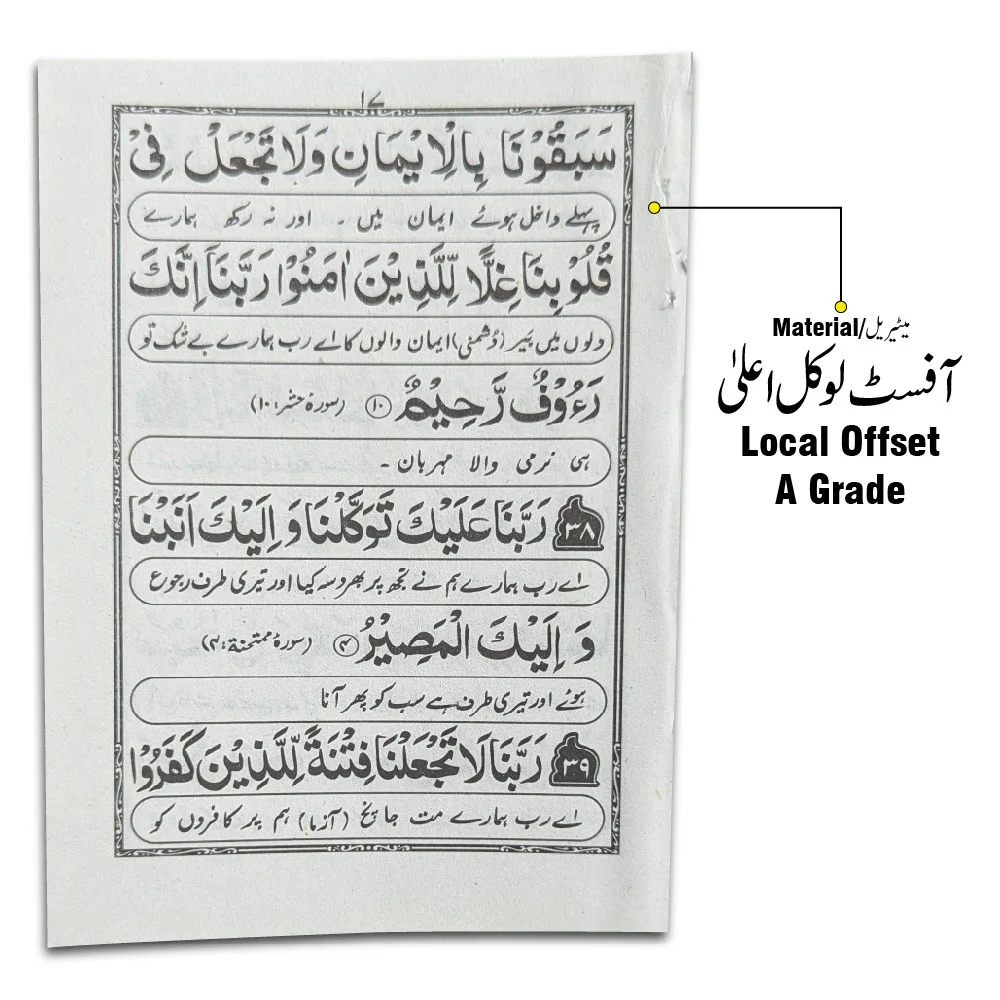 ۱۷
سَبَقُوْنَا بِالْاِيْمَانِ وَلَا تَجْعَلْ فِيْ
پہلے داخل ہوئے ایمان میں ۔ اور نہ رکھ ہمارے
قُلُوْبِنَا غِلًّا لِّلَّذِيْنَ اٰمَنُوْا رَبَّنَآ اِنَّكَ
دلوں میں بَیر (دُشمنی) ایمان والوں کا اے رب ہمارے بے شک تو
رَءُوْفٌ رَّحِيْمٌ ۝۱۰ (سورۃ حشر: ۱۰)
ہی نرمی والا مہربان ۔
۳۸ رَبَّنَا عَلَيْكَ تَوَكَّلْنَا وَ اِلَيْكَ اَنَبْنَا
اے رب ہمارے ہم نے تجھ پر بھروسہ کیا اور تیری طرف رجوع
وَ اِلَيْكَ الْمَصِيْرُ ۝۴ (سورۃ ممتحنۃ: ۴)
ہوئے اور تیری طرف ہے سب کو پھر آنا
۳۹ رَبَّنَا لَا تَجْعَلْنَا فِتْنَةً لِّلَّذِيْنَ كَفَرُوْا
اے رب ہمارے مت جانچ (آزما) ہم پر کافروں کو
Material/میٹیریل
آفسٹ لوکل اعلیٰ
Local Offset
A Grade